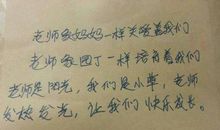 老师像妈妈一样关爱着我们
老师象园丁一样培育着我们
老师是阳光，我们是小草，老师
发挍发光，让我们快乐成长。